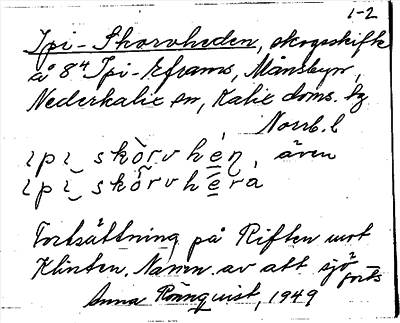 1-2
Ipi-Skorvheden, skogsskifte
å 8⁴ Ipi-Eframs, Månsbyn,
Nederkalix sn, Kalix doms. hg
Norrb. l
ipi skòrvhen, även
ipi skòrvhera
Fortsättning på Riften mot
Klinten. Namn. av att sjö
forts
Anna Rönnquist, 1949